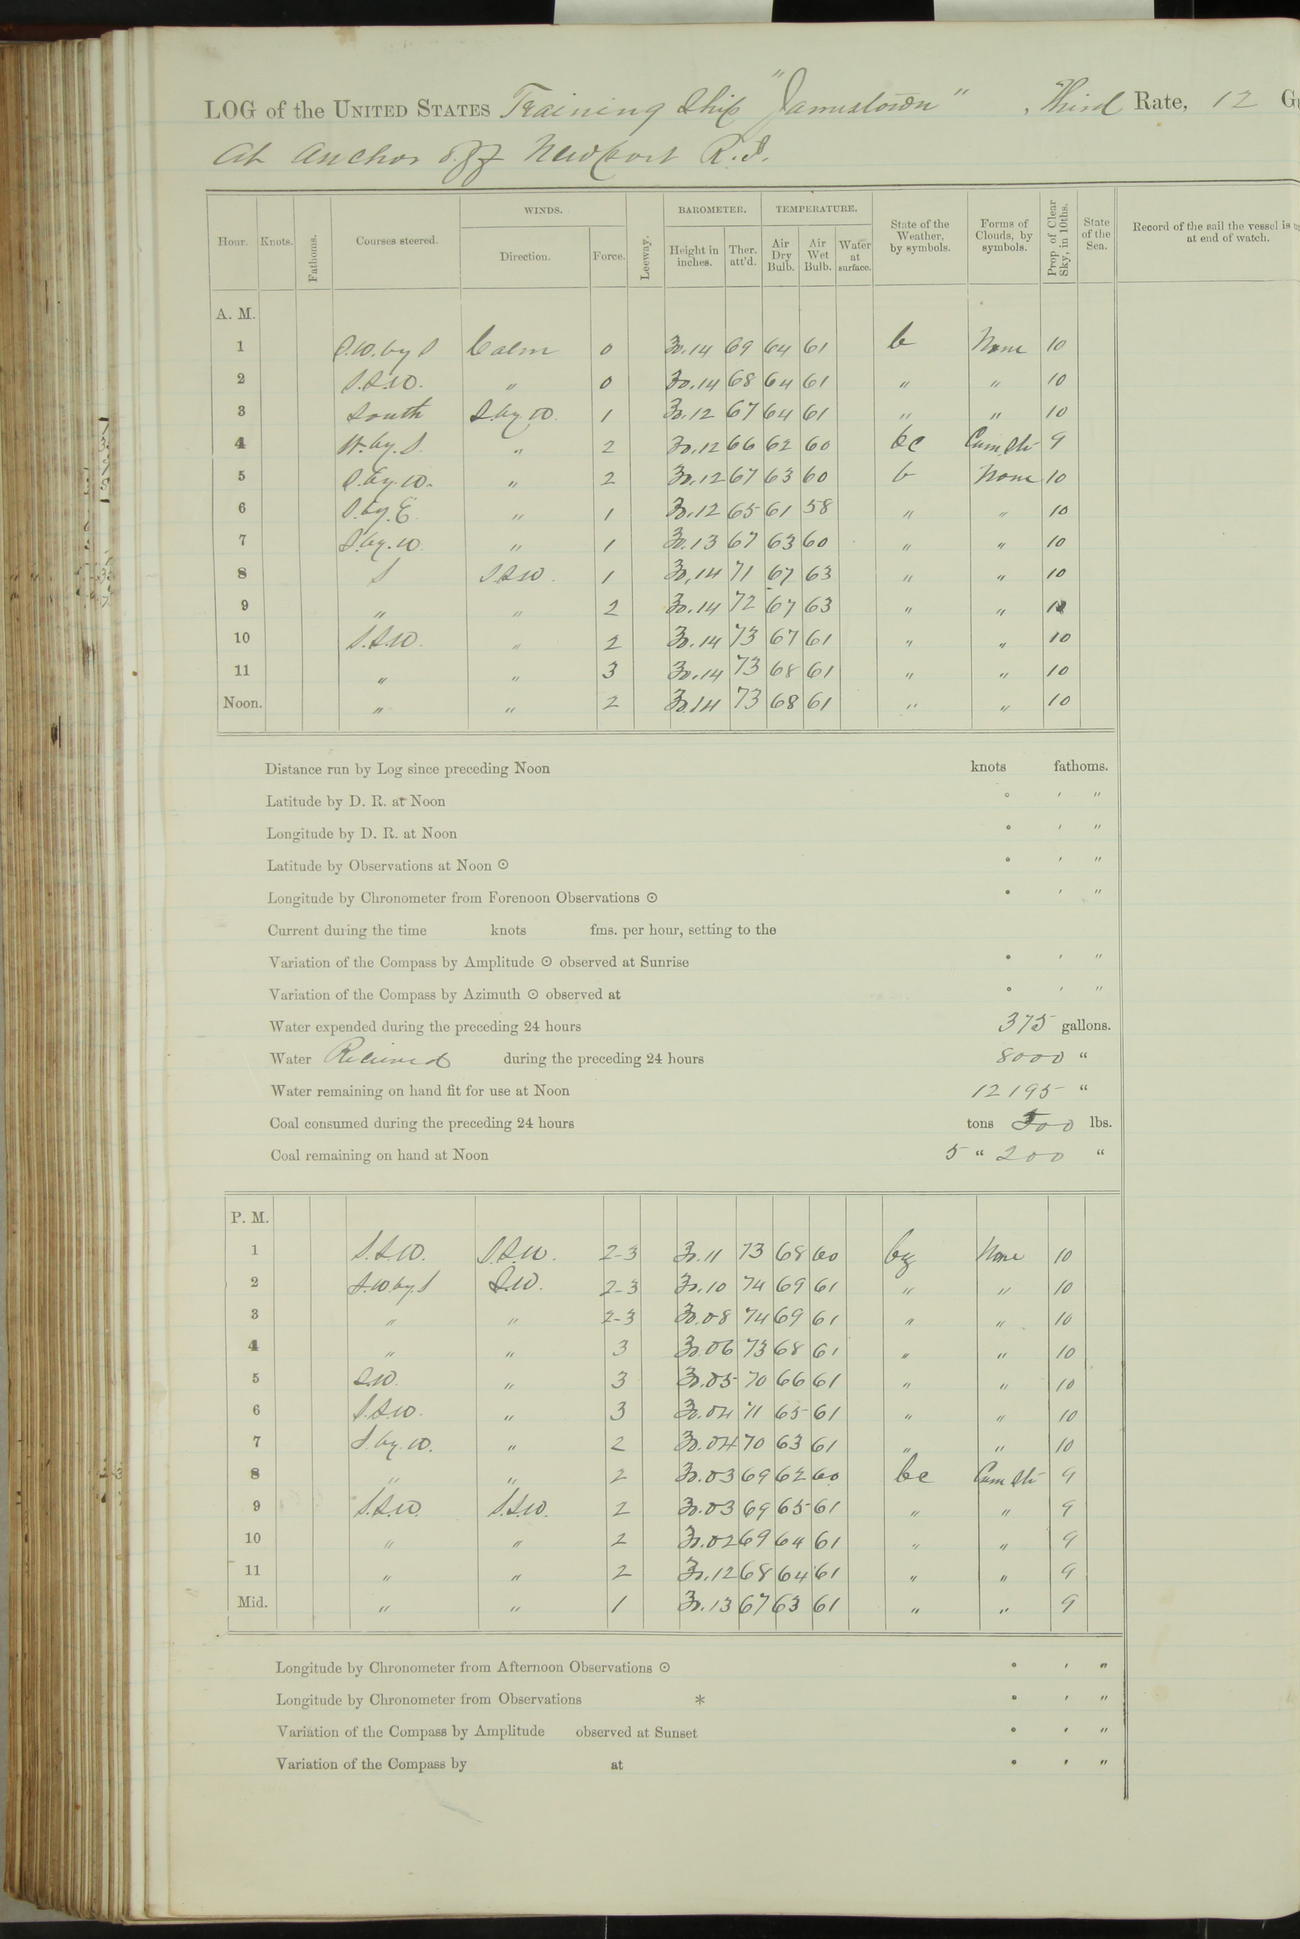 LOG of the UNITED STATES Training Ship "Jamestown" , Third Rate, 12 G
At Anchor off Newport R.I.
Hour. Knots. Fathoms. Courses steered. WINDS. Direction. Force. Leeway. BAROMETER. Height in inches. Ther. att'd. TEMPERATURE. Air Dry Bulb. Air Wet Bulb. Water at surface. State of the Weather, by symbols. Forms of Clouds, by symbols. Prop. of Clear Sky, in 10ths. State of the Sea. Record of the sail the vessel is at end of watch.
A. M.
1 S.W. by S Calm 0 30.14 69 64 61 b None 10
2 S.S.W. " 0 30.14 68 64 61 " " 10
3 South S. by W. 1 30.12 67 64 61 " " 10
4 W. by. S. " 2 30.12 66 62 60 bc Cum. Str 9
5 S. by. W. " 2 30.12 67 63 60 b None 10
6 S. by. E. " 1 30.12 65 61 58 " " 10
7 S. by. W. " 1 30.13 67 63 60 " " 10
8 S S.S.W. 1 30.14 71 67 63 " " 10
9 " " 2 30.14 72 67 63 " " 10
10 S.S.W. " 2 30.14 73 67 61 " " 10
11 " " 3 30.14 73 68 61 " " 10
Noon. " " 2 30.14 73 68 61 " " 10
Distance run by Log since preceding Noon knots fathoms.
Latitude by D. R. at Noon ° ′ ″
Longitude by D. R. at Noon ° ′ ″
Latitude by Observations at Noon ☉ ° ′ ″
Longitude by Chronometer from Forenoon Observations ☉ ° ′ ″
Current during the time knots fms. per hour, setting to the
Variation of the Compass by Amplitude ☉ observed at Sunrise ° ′ ″
Variation of the Compass by Azimuth ☉ observed at ° ′ ″
Water expended during the preceding 24 hours 375 gallons.
Water Received during the preceding 24 hours 8000 "
Water remaining on hand fit for use at Noon 12195 "
Coal consumed during the preceding 24 hours tons 500 lbs.
Coal remaining on hand at Noon 5 " 200 "
P. M.
1 S.S.W. S.S.W. 2-3 30.11 73 68 60 bz None 10
2 S.W. by. S S.W. 2-3 30.10 74 69 61 " " 10
3 " " 2-3 30.08 74 69 61 " " 10
4 " " 3 30.06 73 68 61 " " 10
5 S.W. " 3 30.05 70 66 61 " " 10
6 S.S.W. " 3 30.04 71 65 61 " " 10
7 S. by. W. " 2 30.04 70 63 61 " " 10
8 " " 2 30.03 69 62 60 bc Cum Str 9
9 S.S.W. S.S.W. 2 30.03 69 65 61 " " 9
10 " " 2 30.02 69 64 61 " " 9
11 " " 2 30.12 68 64 61 " " 9
Mid. " " 1 30.13 67 63 61 " " 9
Longitude by Chronometer from Afternoon Observations ☉ ° ′ ″
Longitude by Chronometer from Observations * ° ′ ″
Variation of the Compass by Amplitude observed at Sunset ° ′ ″
Variation of the Compass by at ° ′ ″